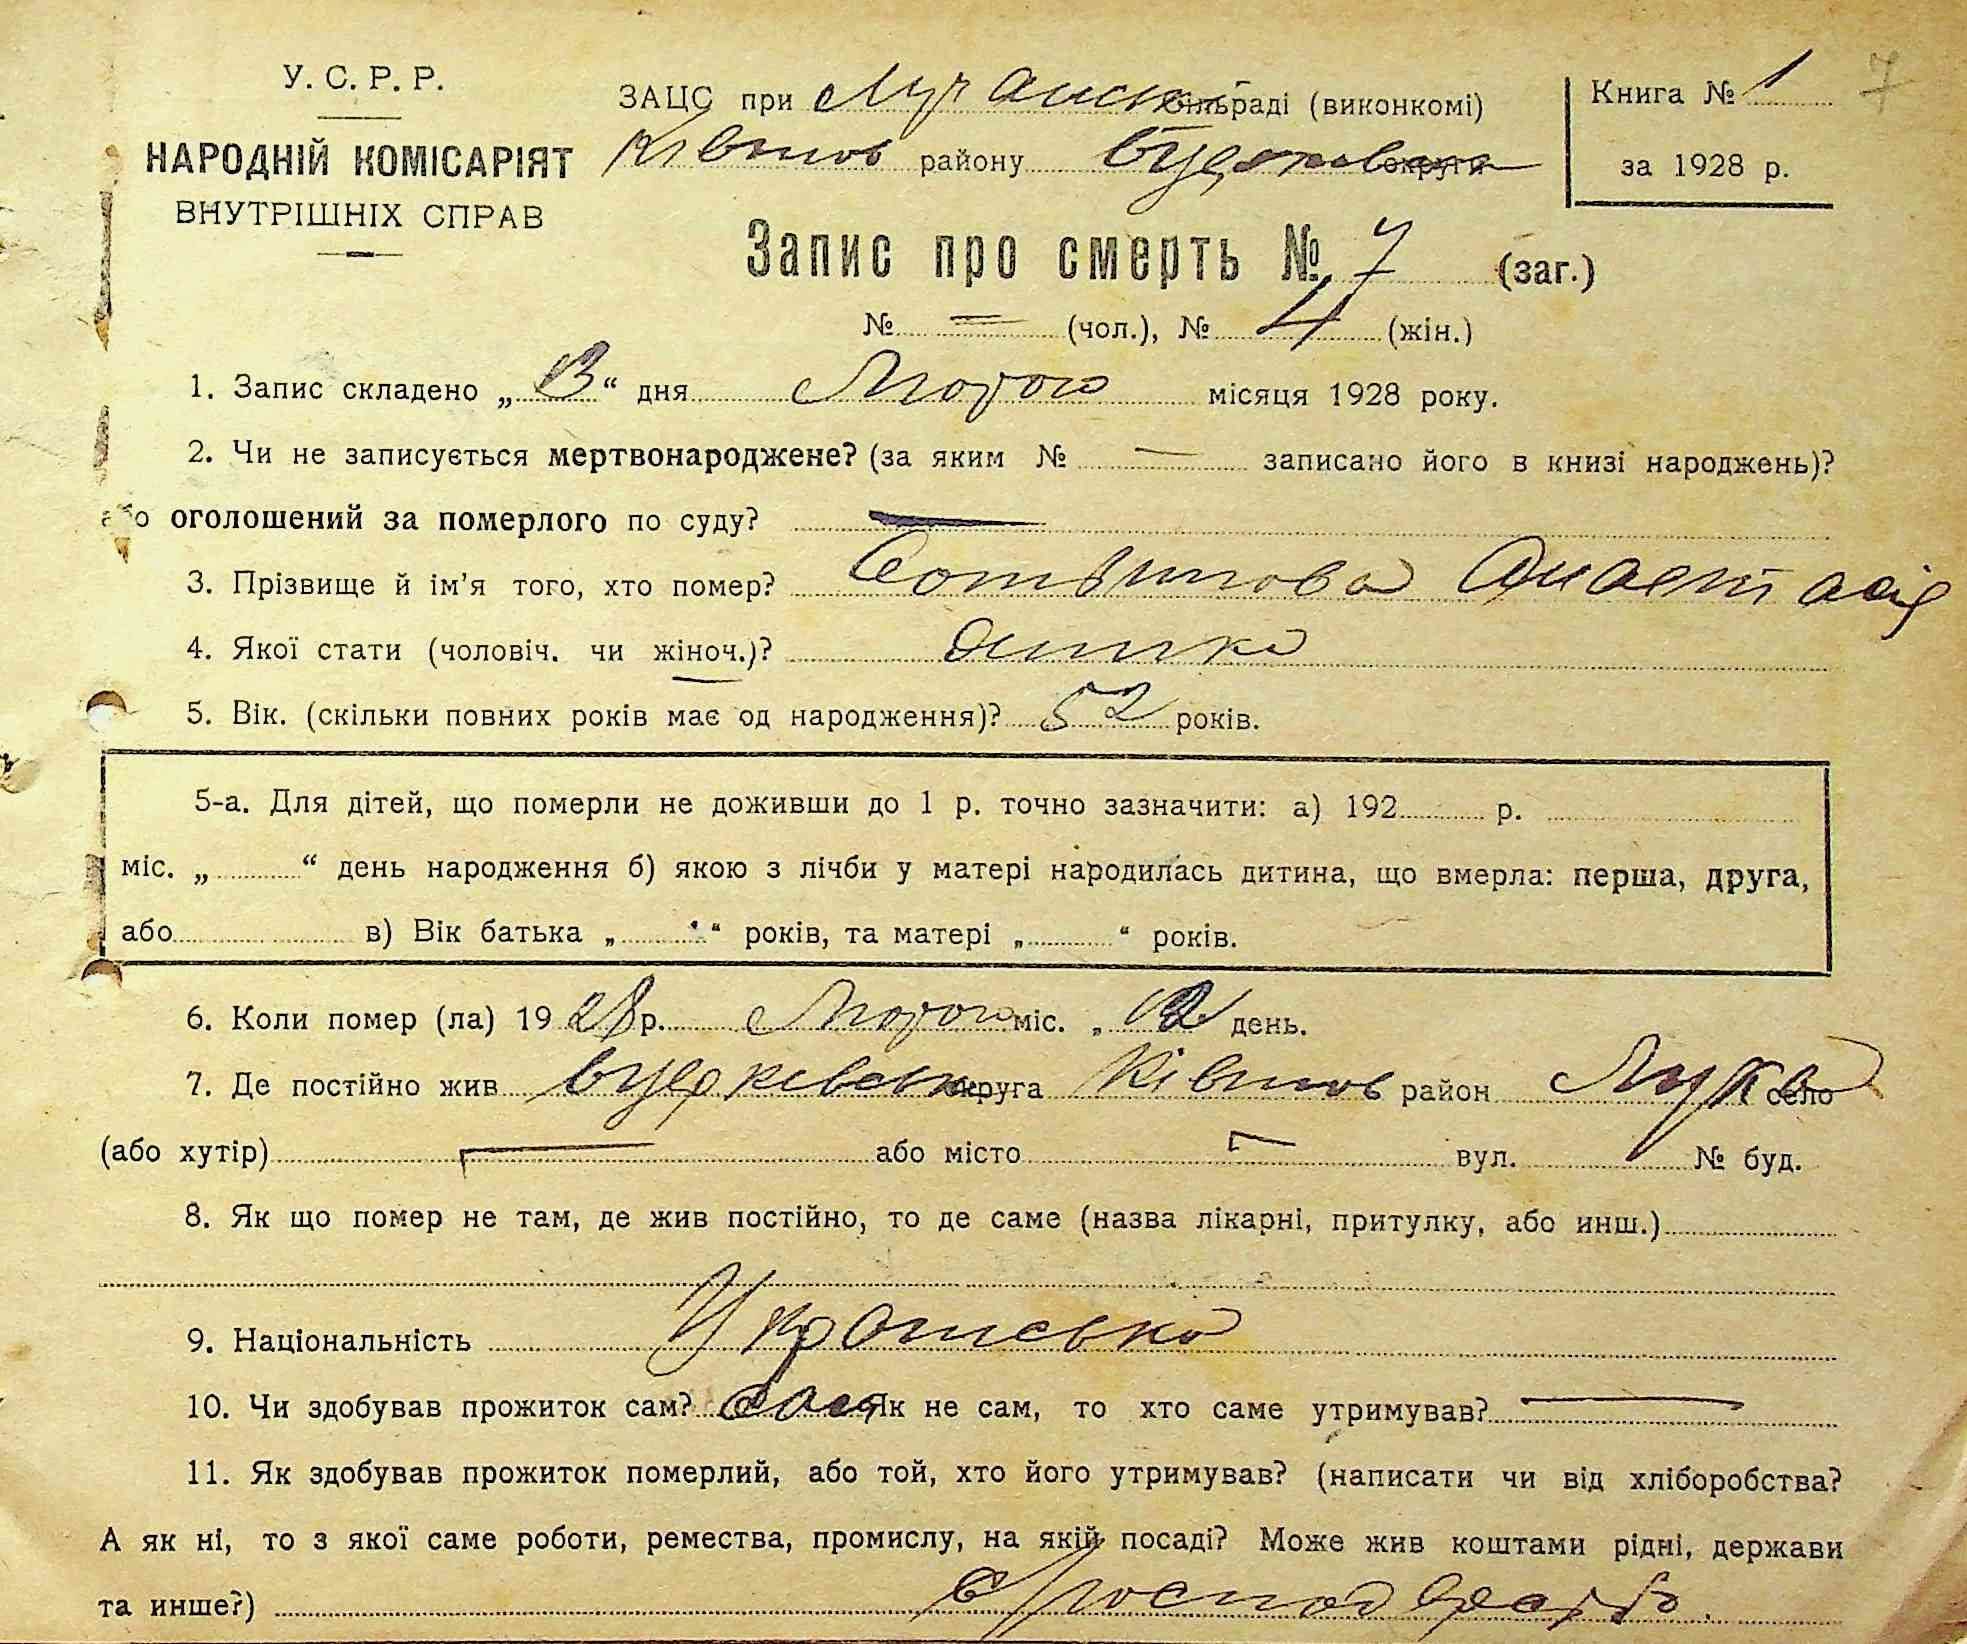 У. С. Р. Р.
НАРОДНІЙ КОМІСАРІЯТ
ВНУТРІШНІХ СПРАВ
ЗАЦС при Лучанській сільраді (виконкомі)
району округи
Книга № 1
за 1928 р.
7
Запис про смерть № 7 (заг.)
№ = (чол.), № 4 (жін.)
1. Запис складено „13“ дня Лютого місяця 1928 року.
2. Чи не записується мертвонароджене? (за яким № — записано його в книзі народжень)?
або оголошений за померлого по суду? —
3. Прізвище й ім'я того, хто помер? Анастасія
4. Якої стати (чоловіч. чи жіноч.)? жінка
5. Вік. (скільки повних років має од народження)? 52 років.
5-а. Для дітей, що померли не доживши до 1 р. точно зазначити: а) 192 р.
міс. „ “ день народження б) якою з лічби у матері народилась дитина, що вмерла: перша, друга,
або в) Вік батька „ “ років, та матері „ “ років.
6. Коли помер (ла) 1928 р. Лютого міс. „12 день.
7. Де постійно жив округа район Лука село
(або хутір) — або місто — вул. № буд.
8. Як що помер не там, де жив постійно, то де саме (назва лікарні, притулку, або инш.)
9. Національність Українська
10. Чи здобував прожиток сам? сама Як не сам, то хто саме утримував? —
11. Як здобував прожиток померлий, або той, хто його утримував? (написати чи від хліборобства?
А як ні, то з якої саме роботи, ремества, промислу, на якій посаді? Може жив коштами рідні, держави
та инше?)